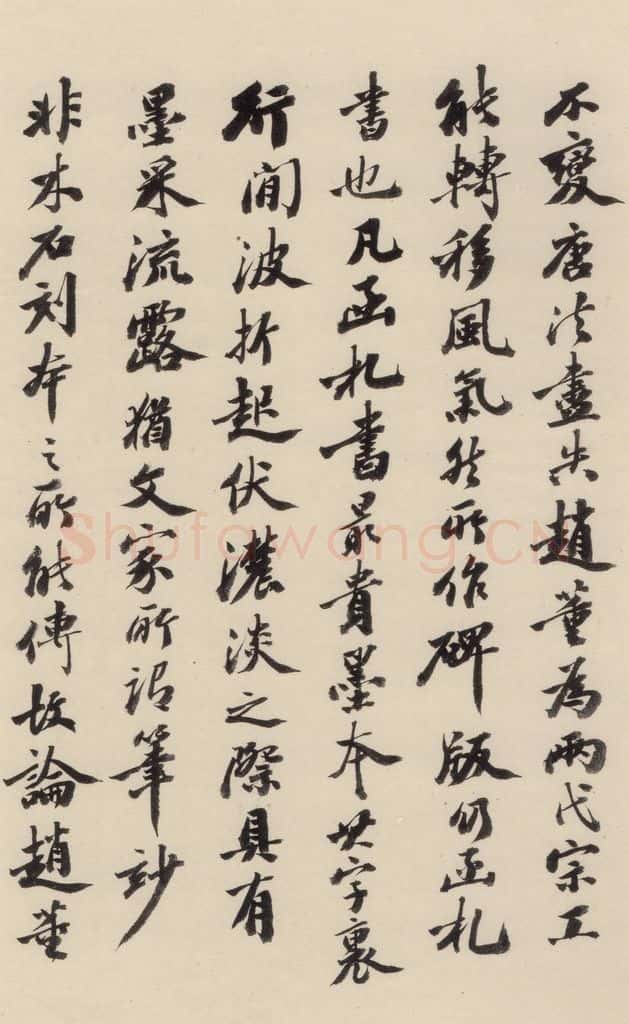 不變唐法盡失趙董為兩代宗工
能轉移風氣然所作碑版仍函札
書也凡函札書最貴墨本其字裏
行間波折起伏濃淡之際具有
墨采流露猶文家所謂筆妙
非木石刻本之所能傳故論趙董
Shufawang.CN